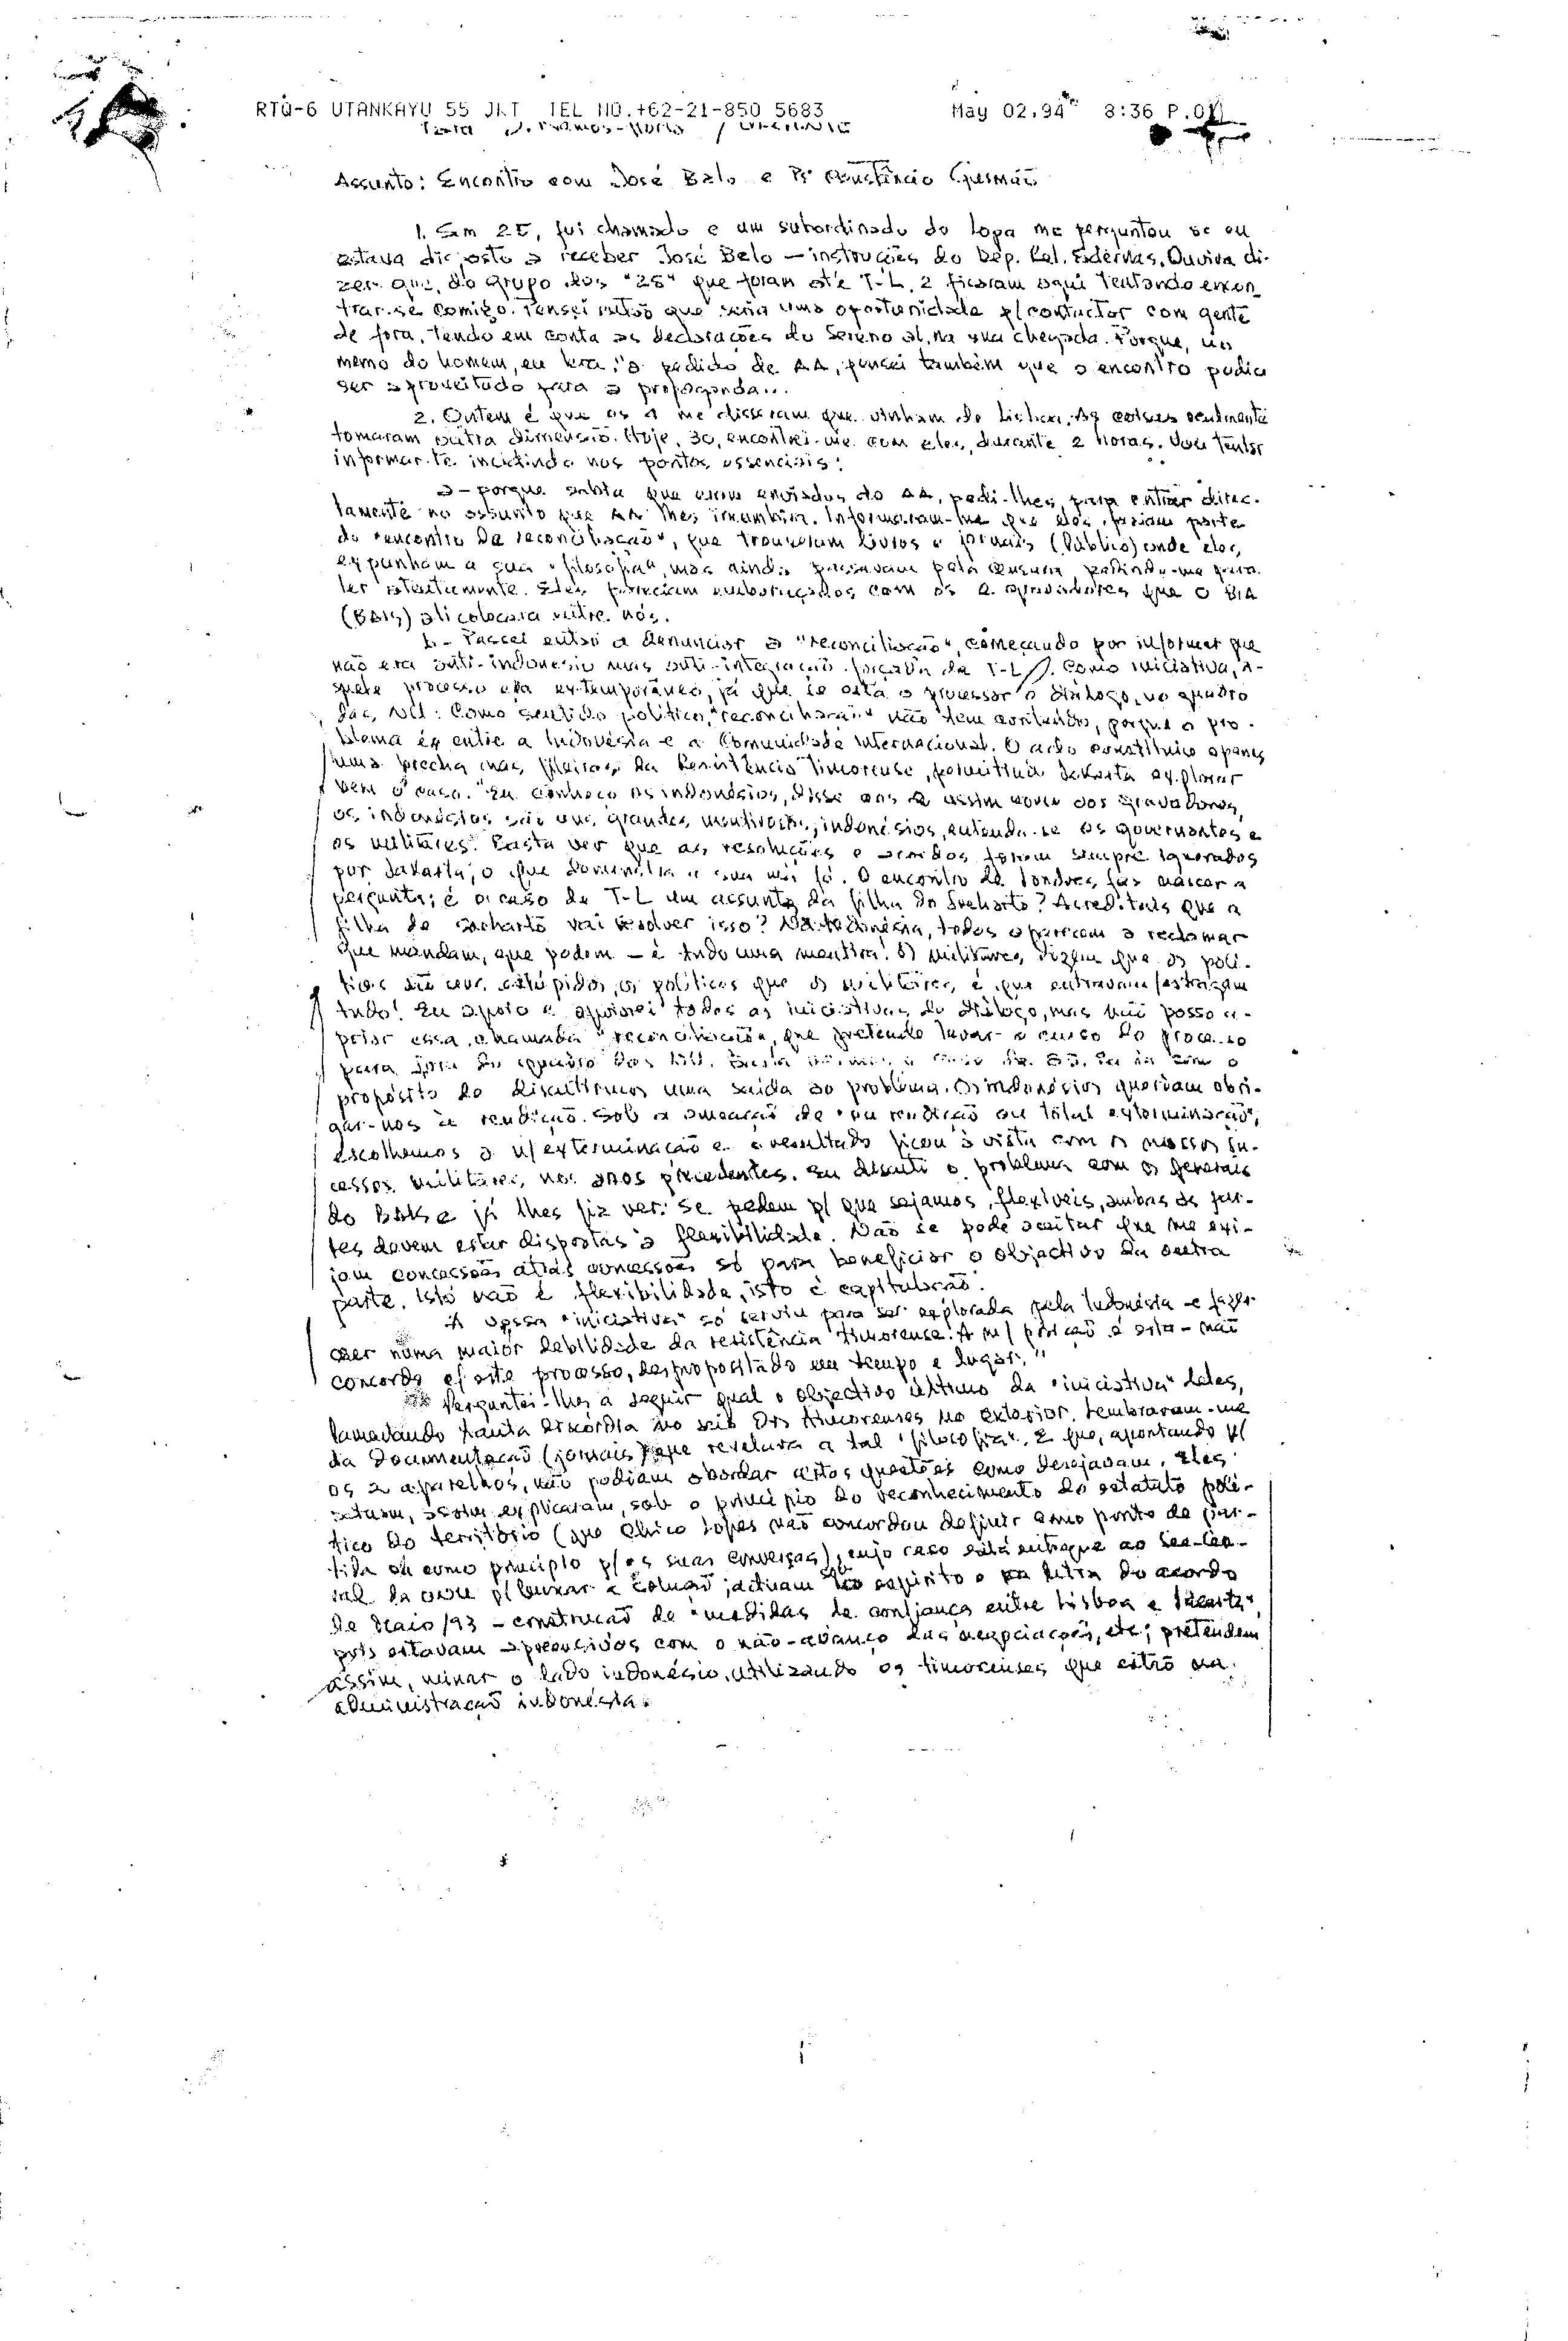 RTQ-6 UTANKAYU 55 JKT TEL NO.+62-21-850 5683 May 02,94 8:36 P.01
Assunto: Encontro com José Belo e Constâncio Gusmão
1. Em 25, fui chamado e um subordinado do me perguntou se eu
estava disposto a receber José Belo — instruções do Dep. Rel. Externas. Ouvira di-
zer que, do grupo dos "25" que foram até T-L, 2 ficaram aqui tentando encon-
trar-se comigo. Pensei então que seria uma oportunidade p/ contactar com gente
de fora, tendo em conta as declarações do na sua chegada. Porque, no
memo do homem, eu era, "a pedido de AA, pensei também que o encontro podia
ser aproveitado para a propaganda...
2. Ontem é que os me disseram que vinham de Lisboa. As coisas realmente
tomaram outra dimensão. Hoje, 30, encontrei-me com eles, durante 2 horas. Vou tentar
informar-te incidindo nos pontos essenciais:
a - porque sabia que eram enviados do AA, pedi-lhes para entrar direc-
tamente no assunto que AA lhes incumbira. Informaram-me que eles faziam parte
do "encontro da reconciliação", que trouxeram livros e jornais (Público) onde eles
expunham a sua "filosofia", mas ainda passavam pela censura, pedindo-me para
ler atentamente. Eles pareciam embaraçados com os 2 gravadores que o BIA
(BAIS) ali colocara entre nós.
b - Passei então a denunciar a "reconciliação", começando por informar que
não era anti-indonésio mas anti-integração forçada de T-L. Como iniciativa, a-
quele processo era extemporâneo, já que se está a processar o diálogo, no quadro
das NU. Como sentido político, "reconciliação" não tem conteúdo, porque o pro-
blema é entre a Indonésia e a Comunidade Internacional. O acto constituiu apenas
uma brecha nas fileiras da Resistência Timorense, permitindo Jakarta explorar
bem o caso. "Eu conheço os indonésios, disse aos 2 assim como aos gravadores,
os indonésios são uns grandes mentirosos; indonésios, entenda-se os governantes e
os militares. Basta ver que as resoluções e acordos foram sempre ignorados
por Jakarta, o que demonstra a sua má fé. O encontro de Londres faz nascer a
pergunta: é o caso de T-L um assunto da filha do Soeharto? Acreditais que a
filha de Soeharto vai resolver isso? Na Indonésia, todos aparecem a reclamar
que mandam, que podem — é tudo uma mentira! Os militares dizem que os polí-
ticos são uns estúpidos, os políticos que os militares é que entravam/estragam
tudo! Eu apoio e apoiarei todas as iniciativas do diálogo, mas não posso a-
poiar essa chamada "reconciliação", que pretende levar o curso do processo
para fora do quadro das NU.
propósito de discutirmos uma saída ao problema. Os indonésios queriam obri-
gar-nos à rendição. Sob a ameaça de "ou rendição ou total exterminação",
escolhemos a n/ exterminação e o resultado ficou à vista com os nossos su-
cessos militares, nos anos precedentes. Eu discuti o problema com os generais
do BAIS e já lhes fiz ver: se pedem p/ que sejamos flexíveis, ambas as par-
tes devem estar dispostas à flexibilidade. Não se pode aceitar que me exi-
jam concessões atrás concessões só para beneficiar o objectivo da outra
parte. Isto não é flexibilidade, isto é capitulação.
A vossa "iniciativa" só serviu para ser explorada pela Indonésia e fazer
crer numa maior debilidade da resistência timorense. A m/ posição é esta - não
concordo c/ este processo, despropositado em tempo e lugar."
Perguntei-lhes a seguir qual o objectivo último da "iniciativa" deles,
lamentando tanta discórdia no seio dos timorenses no exterior. Lembraram-me
da documentação (jornais) que revelava a tal "filosofia". E que, apontando p/
os 2 aparelhos, não podiam abordar certas questões como desejavam. Eles
actuam, assim explicaram, sob o princípio do reconhecimento do estatuto polí-
tico do território (que Chico Lopes não concordou definir como ponto de par-
tida ou como princípio p/ as suas conversas), cujo caso está entregue ao Sec-Ge-
ral da ONU p/ buscar a solução; actuam no espírito e na letra do acordo
de Maio/93 - construção de "medidas de confiança entre Lisboa e Jakarta",
pois estavam apreensivos com o não-avanço das negociações, etc; pretendem
assim, minar o lado indonésio, utilizando os timorenses que estão na
administração indonésia.